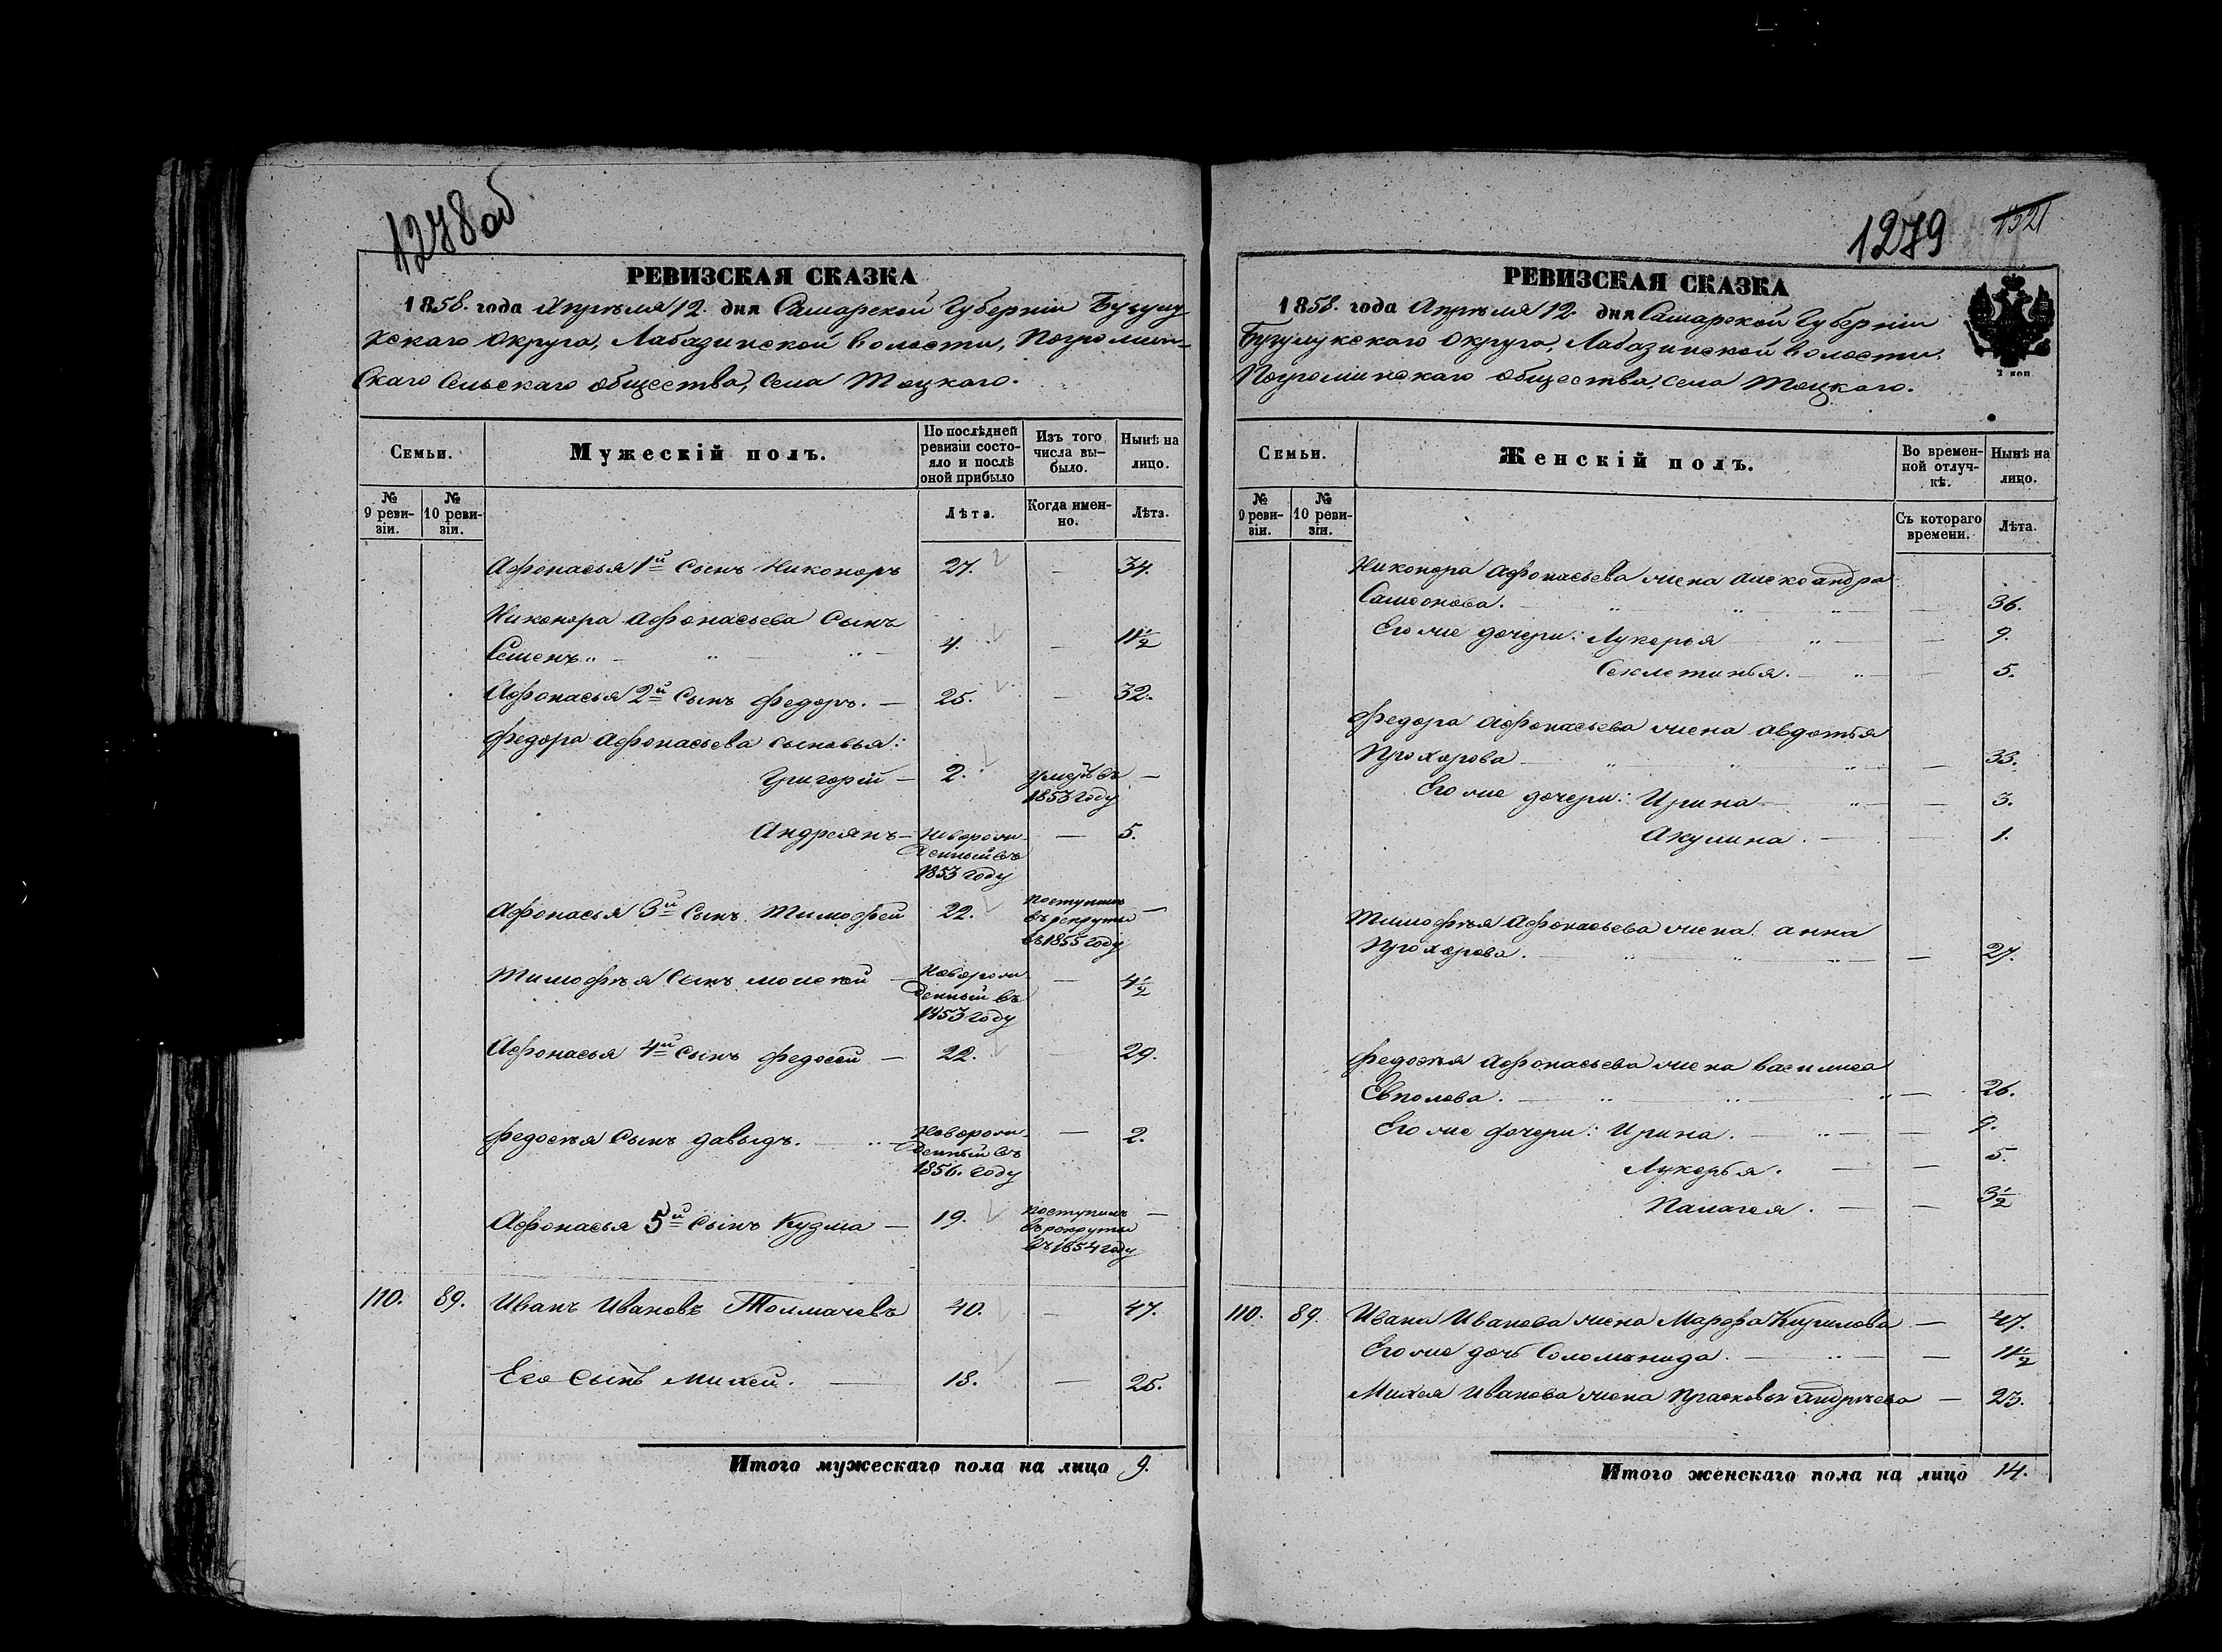 1278 об
РЕВИЗСКАЯ СКАЗКА
1858. года Апрѣля 12. дня Самарской Губерніи Бугулу-
кскаго Округа, Лабазинской Волости, Погромин-
скаго Сельскаго общества, Села Тоцкаго.
Семьи.
Мужескій полъ.
По послѣдней ревизіи состо-
яло и послѣ оной прибыло
Изъ того числа вы-
было.
Нынѣ на лицо.
№ 9 реви-
зіи.
№ 10 реви-
зіи.
Лѣта.
Когда имен-
но.
Лѣта.
Афонасья 1й Сынъ Никоноръ 27. — 34.
Никонора Афонасьева Сынъ
Семенъ 4. — 11½
Афонасья 2й Сынъ Федоръ. — 25. — 32.
Федора Афонасьева сыновья:
Григорій — 2. умеръ въ 1853 году —
Андреянъ — Новорож-
денный въ 1853 году — 5.
Афонасья 3й Сынъ Тимофей 22. поступилъ въ рекруты въ 1855 году —
Тимофѣя Сынъ Моисей — Новорож-
денный въ 1853 году — 4½
Афонасья 4й Сынъ Федосей — 22. — 29.
Федосѣя Сынъ Давыдъ. — Новорож-
денный въ 1856. году — 2.
Афонасья 5й Сынъ Кузма — 19. поступилъ въ рекруты въ 1854 году —
110. 89. Иванъ Ивановъ Толмачевъ 40. — 47.
Его Сынъ Михей. — 18. — 25.
Итого мужескаго пола на лицо 9.
1279 1321
РЕВИЗСКАЯ СКАЗКА
1858. года Апрѣля 12. дня Самарской Губерніи
Бугулукскаго Округа, Лабазинской Волости,
Погроминскаго общества, Села Тоцкаго.
2 коп
Семьи.
Женскій полъ.
Во времен-
ной отлуч-
кѣ.
Нынѣ на лицо.
№ 9 реви-
зіи.
№ 10 реви-
зіи.
Съ котораго времени.
Лѣта.
Никонора Афонасьева жена Александра
Самсонова. — 36.
Его же дочери: Лукерья — 9.
Секлетинья. — 5.
Федора Афонасьева жена Авдотья
Прохорова — 33.
Его же дочери: Ирина — 3.
Акулина. — 1.
Тимофѣя Афонасьева жена Анна
Прохорова. — 27.
Федосѣя Афонасьева жена Василиса
— 26.
Его же дочери: Ирина. — 9.
Лукерья. — 5.
Палагея. — 3½
110. 89. Ивана Иванова жена Марфа Кирилова — 47.
Его же дочь Соломѣнида. — 11½
Михея Иванова жена Прасковья Андрѣева — 23.
Итого женскаго пола на лицо 14.